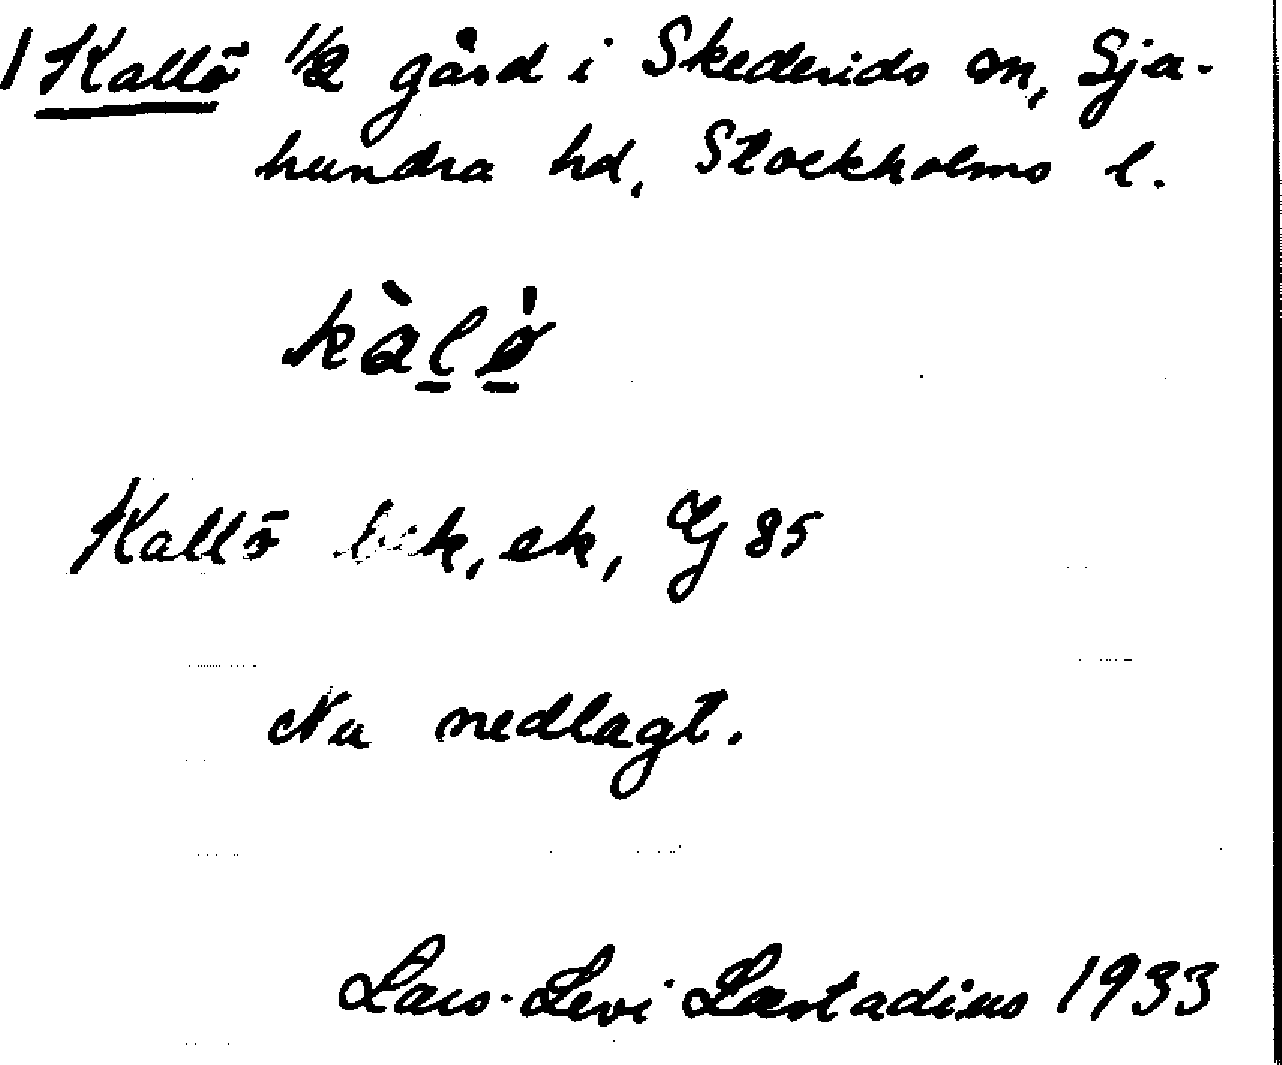 1 Kallö 1/2 gård i Skederids sn, Sja-
hundra hd, Stockholms l.
kàl̠ø̠̀
Kallö bek, ek, G 85
Nu nedlagt.
Lars-Levi Læstadius 1933